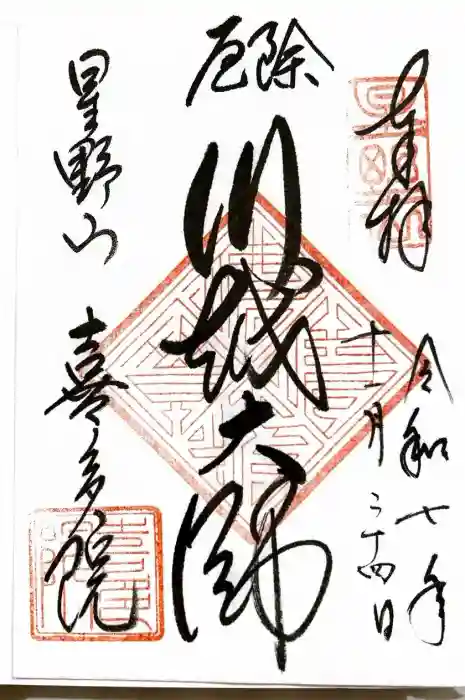 奉拝
令和七年
十一月二十四日
厄除
川越大師
星野山
喜多院